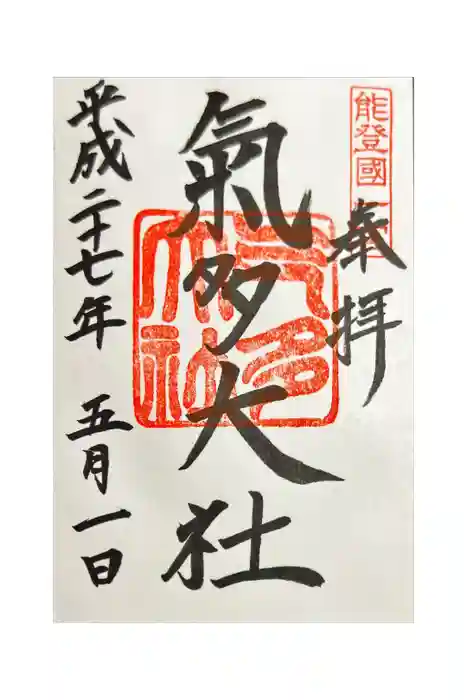 能登國一
奉拝
氣多大社
氣多大社
平成二十七年 五月一日